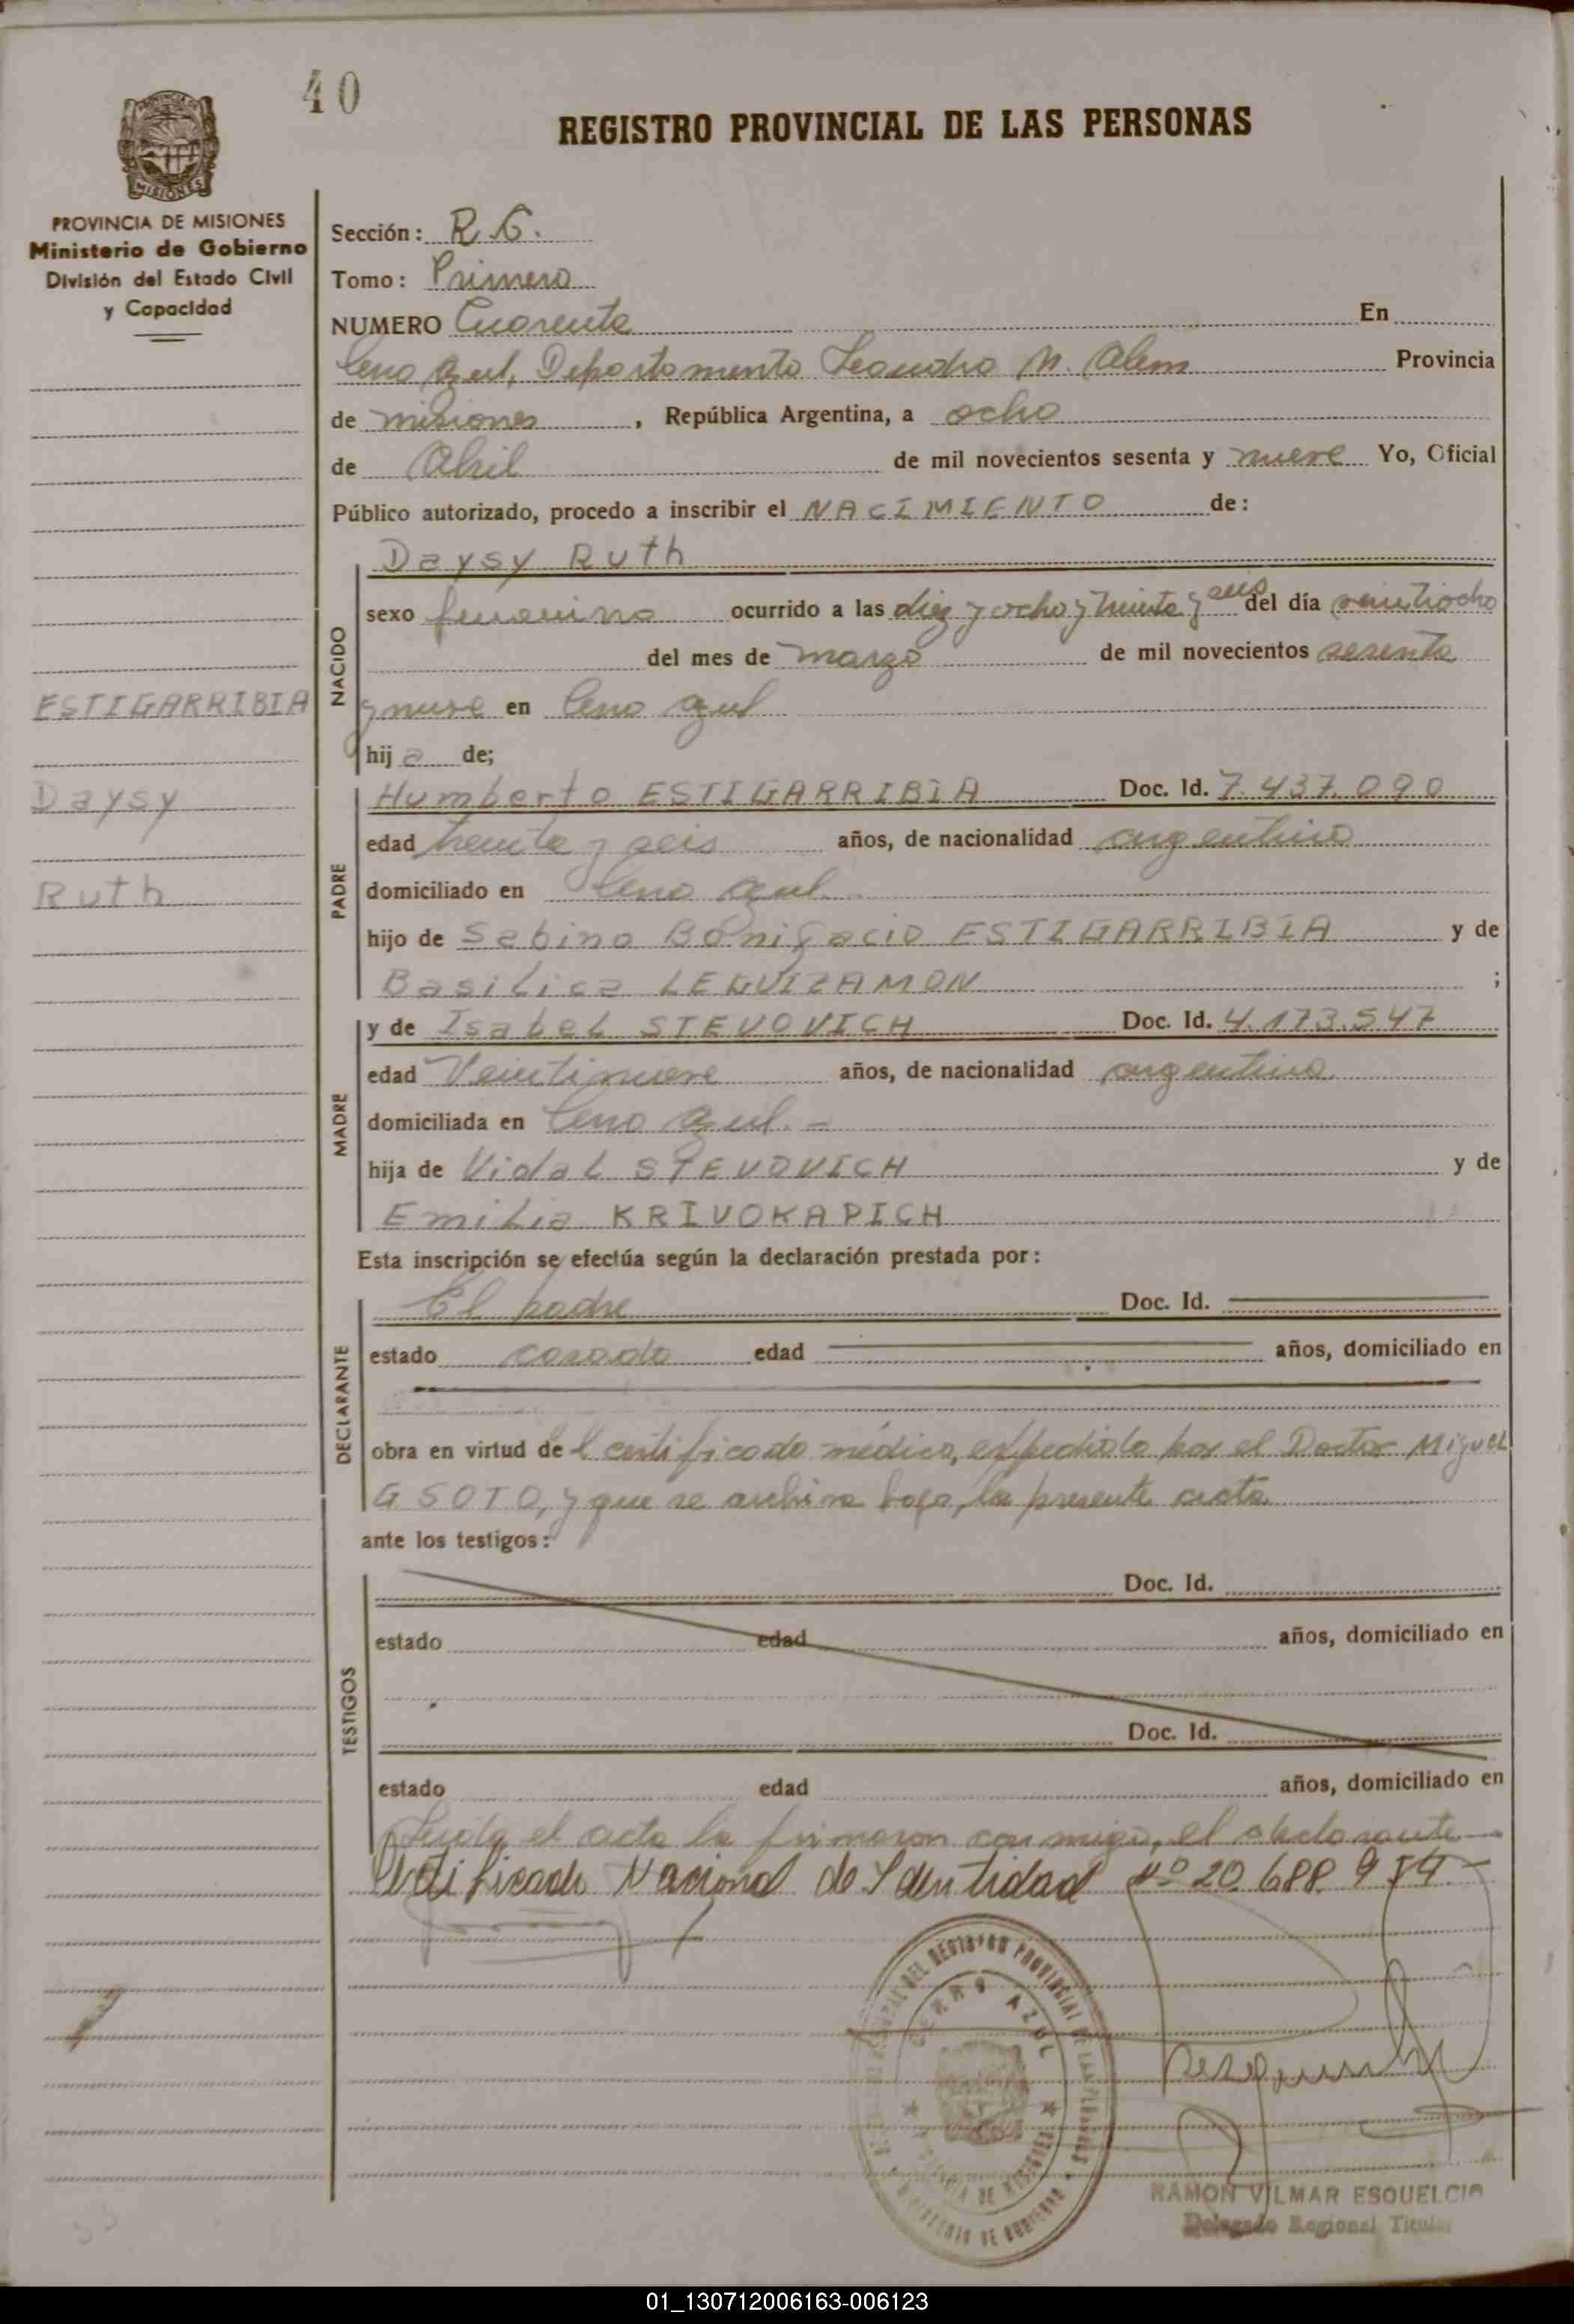 40
REGISTRO PROVINCIAL DE LAS PERSONAS
MISIONES
PROVINCIA DE MISIONES
Ministerio de Gobierno
División del Estado Civil
y Capacidad
Sección: R.G.
Tomo: Primero
NUMERO Cuarenta En
Cerro Azul, Departamento Leandro N. Alem Provincia
de Misiones, República Argentina, a ocho
de Abril de mil novecientos sesenta y nueve Yo, Oficial
Público autorizado, procedo a inscribir el NACIMIENTO de:
Daysy Ruth
NACIDO
sexo femenino ocurrido a las diez y ocho y treinta y seis del día veintiocho
del mes de marzo de mil novecientos sesenta
y nueve en Cerro Azul
hija de;
ESTIGARRIBIA
Daysy
Ruth
PADRE
Humberto ESTIGARRIBIA Doc. Id. 7.437.090
edad treinta y seis años, de nacionalidad argentino
domiciliado en Cerro Azul
hijo de Sabino Bonifacio ESTIGARRIBIA y de
Basilica LEGUIZAMON ;
MADRE
y de Isabel STEVOVICH Doc. Id. 4.173.547
edad Veintinueve años, de nacionalidad argentina
domiciliada en Cerro Azul. -
hija de Vidal STEVOVICH y de
Emilia KRIVOKAPICH
Esta inscripción se efectúa según la declaración prestada por:
DECLARANTE
El padre Doc. Id.
estado casado edad años, domiciliado en
obra en virtud de l certificado médico, expedido por el Doctor Miguel
G SOTO, y que se archiva bajo la presente acta
ante los testigos:
TESTIGOS
Doc. Id.
estado edad años, domiciliado en
Doc. Id.
estado edad años, domiciliado en
Leida el acta la firmaron conmigo, el declarante
Certificado Nacional de Identidad Nº 20.688.954-
CERRO AZUL
RAMON VILMAR ESQUELCIO
Delegado Regional Titular
01_130712006163-006123